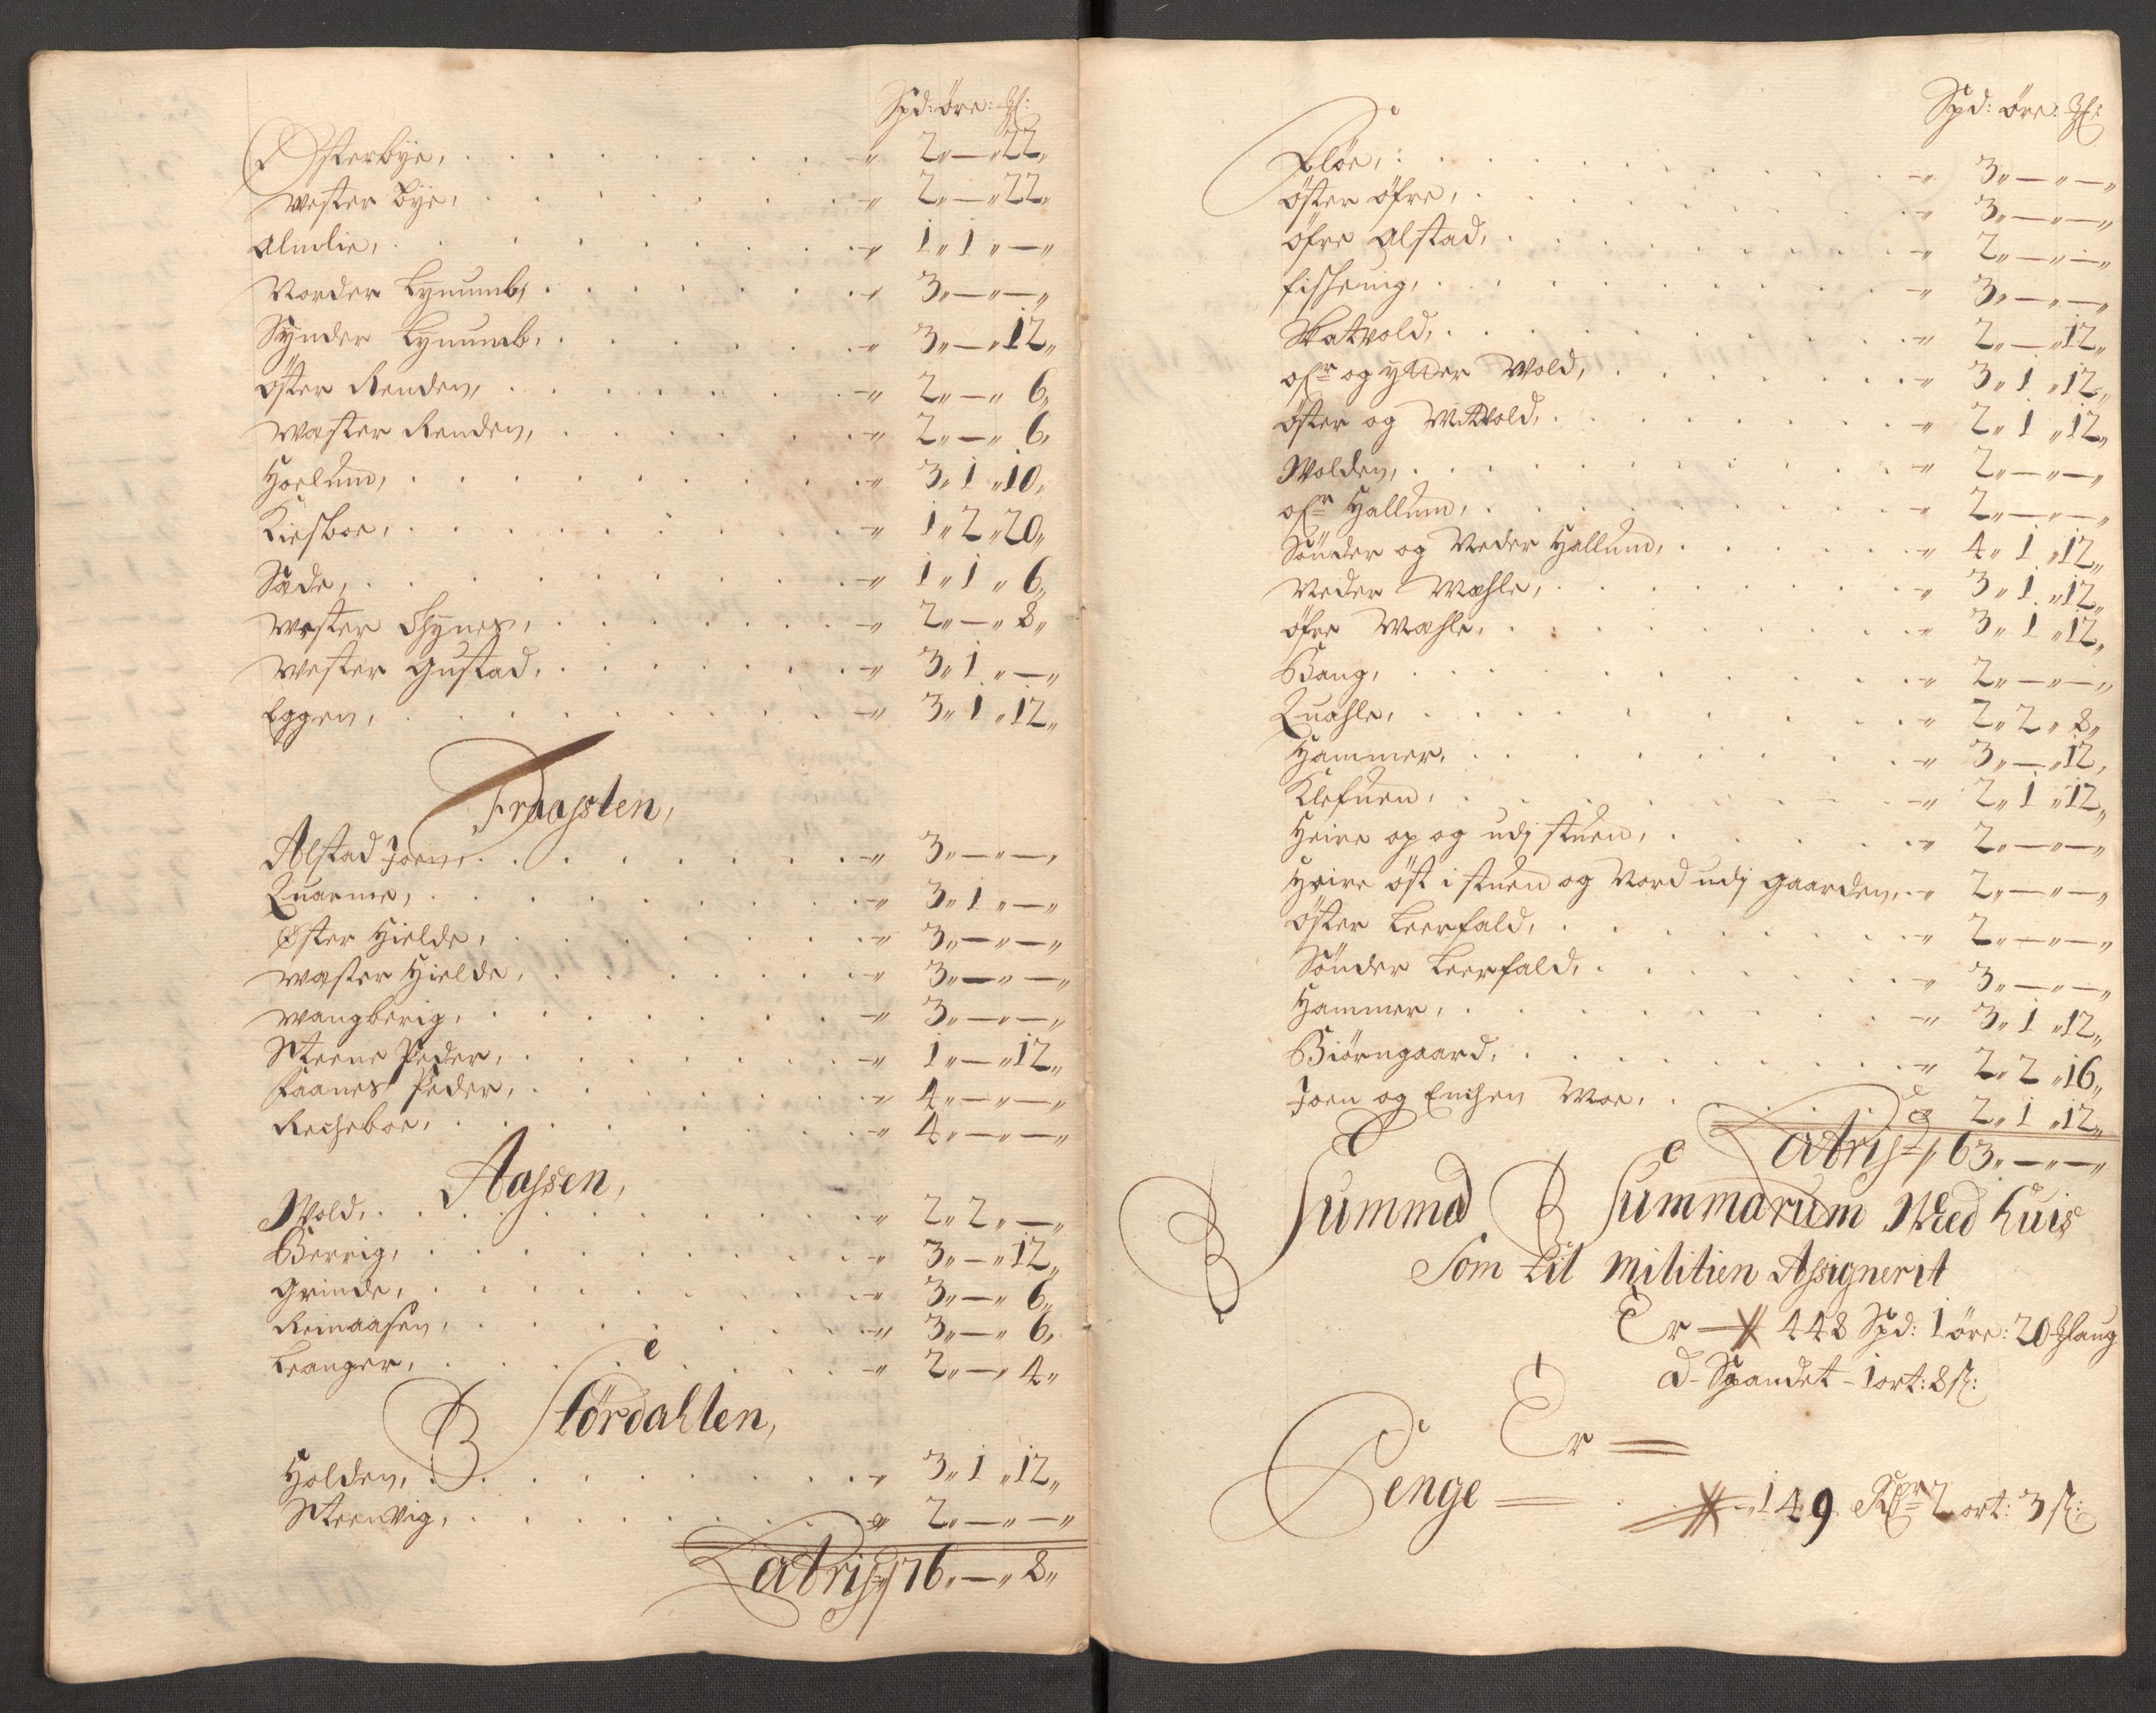 Spd: öre:
Østerbÿe, 2 „ — „ 22 „
Wester Bÿe, 2 „ — „ 22 „
Almlie, 1 „ 1 „ — „
Norder Lynumb, 3 „ — „ — „
Synder Lynumb, 3 „ — „ 12 „
öster Renden, 2 „ — „ 6 „
Wæster Renden, 2 „ — „ 6 „
Hoelum, 3 „ 1 „ 10 „
Kiesboe, 1 „ 2 „ 20 „
Sæde, 1 „ 1 „ 6 „
Wester Thynes, 2 „ — „ 8 „
Wester Gustad, 3 „ 1 „ — „
Eggen, 3 „ 1 „ 12 „
Fraasten,
Alstad Joen, 3 „ — „ — „
Quarme, 3 „ 1 „ — „
Øster Hielde, 3 „ — „ — „
Wæster Hielde, 3 „ — „ — „
Wangberig, 3 „ — „ — „
Steene Peder, 1 „ — „ 12 „
Faanes Peder, 4 „ — „ — „
Recheboe, 4 „ — „ — „
Aassen,
Wold, 2 „ 2 „ — „
Berrig, 3 „ — „ 12 „
Grinde, 3 „ — „ 6 „
Reinaasen, 3 „ — „ 6 „
Leanger, 2 „ — „ 4 „
Stördahlen,
Holden, 3 „ 1 „ 12 „
Steenvig, 2 „ — „ — „
Latris „ 76 „ — „ 8 „
Spd: öre:
Fløe, 3 „ — „ — „
öster öfre, 3 „ — „ — „
öfre Alstad, 2 „ — „ — „
fissenig, 3 „ — „ — „
Skatvold, 2 „ — „ 12 „
ofr og ytter Wold, 3 „ 1 „ 12 „
öster og Mitvold, 2 „ 1 „ 12 „
Wolden, 2 „ — „ — „
ofr Hallum, 2 „ — „ — „
Sönder og Neder Hallum, 4 „ 1 „ 12 „
Neder Wahle, 3 „ 1 „ 12 „
öfre Wahle, 3 „ 1 „ 12 „
Bang, 2 „ — „ — „
Quahle, 2 „ 2 „ 8 „
Hammer, 3 „ — „ 12 „
Klefuen, 2 „ 1 „ 12 „
Heire op og udj stuen, 2 „ — „ — „
Heire öst i stuen og Nord udj gaarden, 2 „ — „ — „
öster Leerfald, 2 „ — „ — „
Sönder Leerfald, 3 „ — „ — „
Hammer, 3 „ 1 „ 12 „
Biörngaard, 2 „ 2 „ 16 „
Joen og Enchen Moe, 2 „ 1 „ 12 „
Latris „ 63 „ — „ — „
Summa Summarum Med huis
Som til Militien Assignerit
Er — 448 Spd: 1 öre: 20
a Spandet - 1 ort: 8 s:
Er =
Penge = 149 Rdr 2 ort: 3 s: